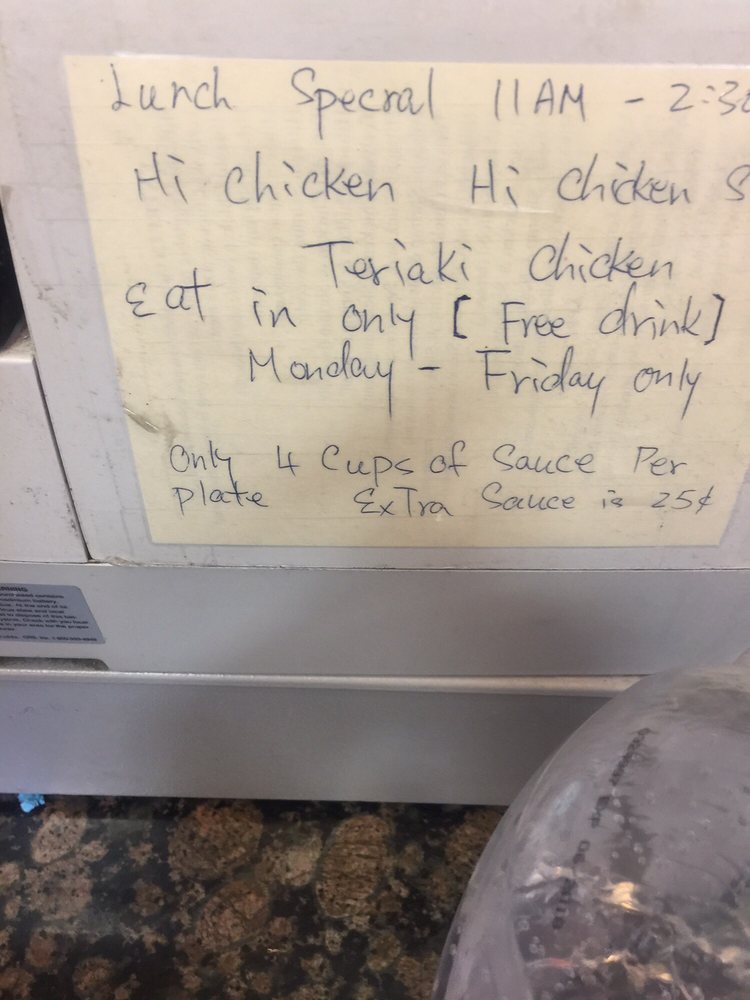 Lunch Specral 11AM - 2:30
Hi Chicken Hi Chicken S
Teriaki Chicken
Eat in only [ Free drink]
Monday - Friday only
Only 4 Cups of Sauce Per
Plate ExTra Sauce is 25¢